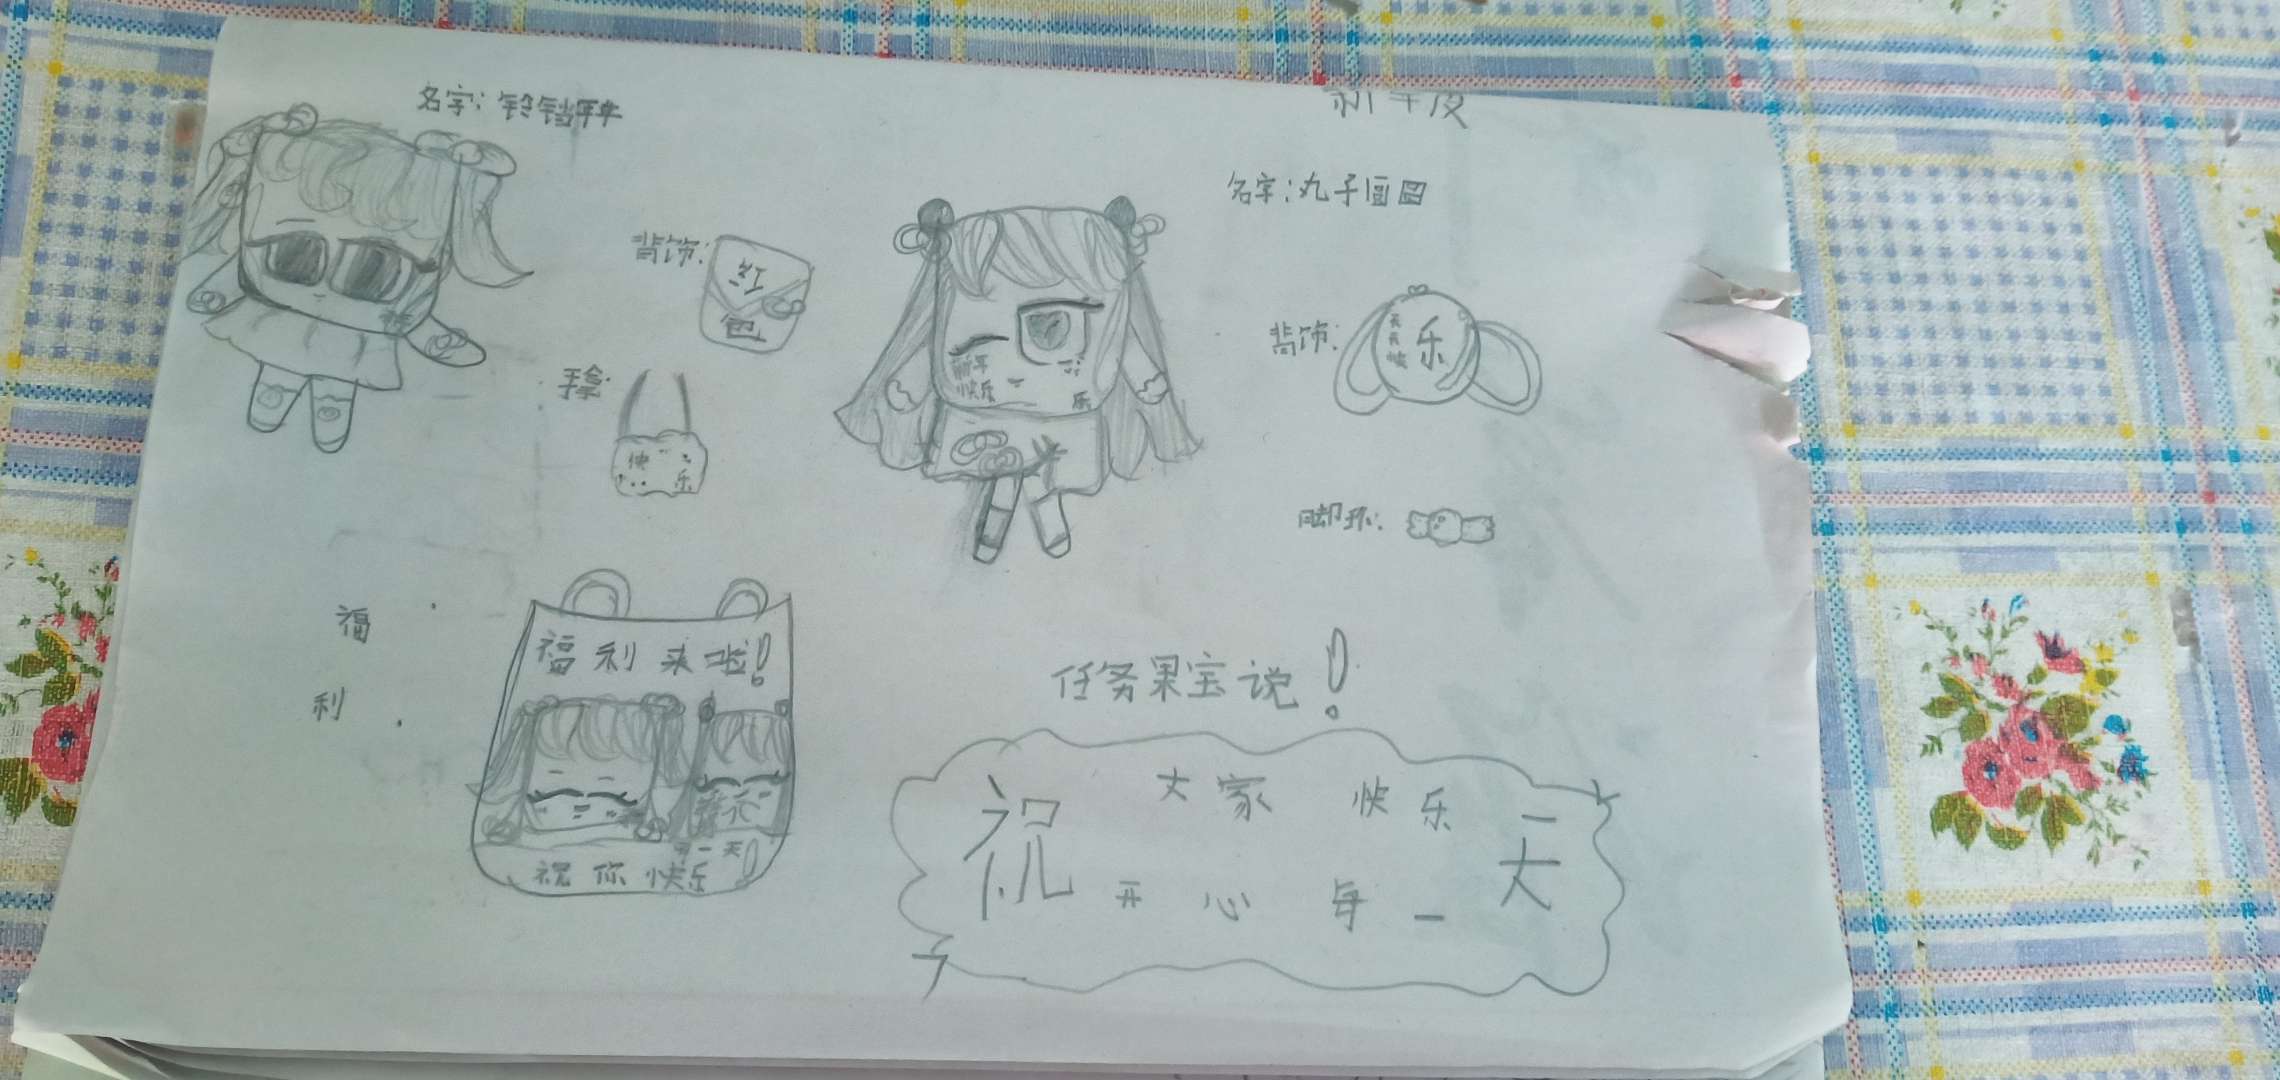 名字:铃铛
背饰:
红
包
手拿:
快
乐
名字:丸子圆圆
背饰:
天天快乐
脚环:
新年
快乐
乐
福
利
福利来啦!
每一天
祝你快乐!
任务果宝说!
祝大家快乐
开心每一天